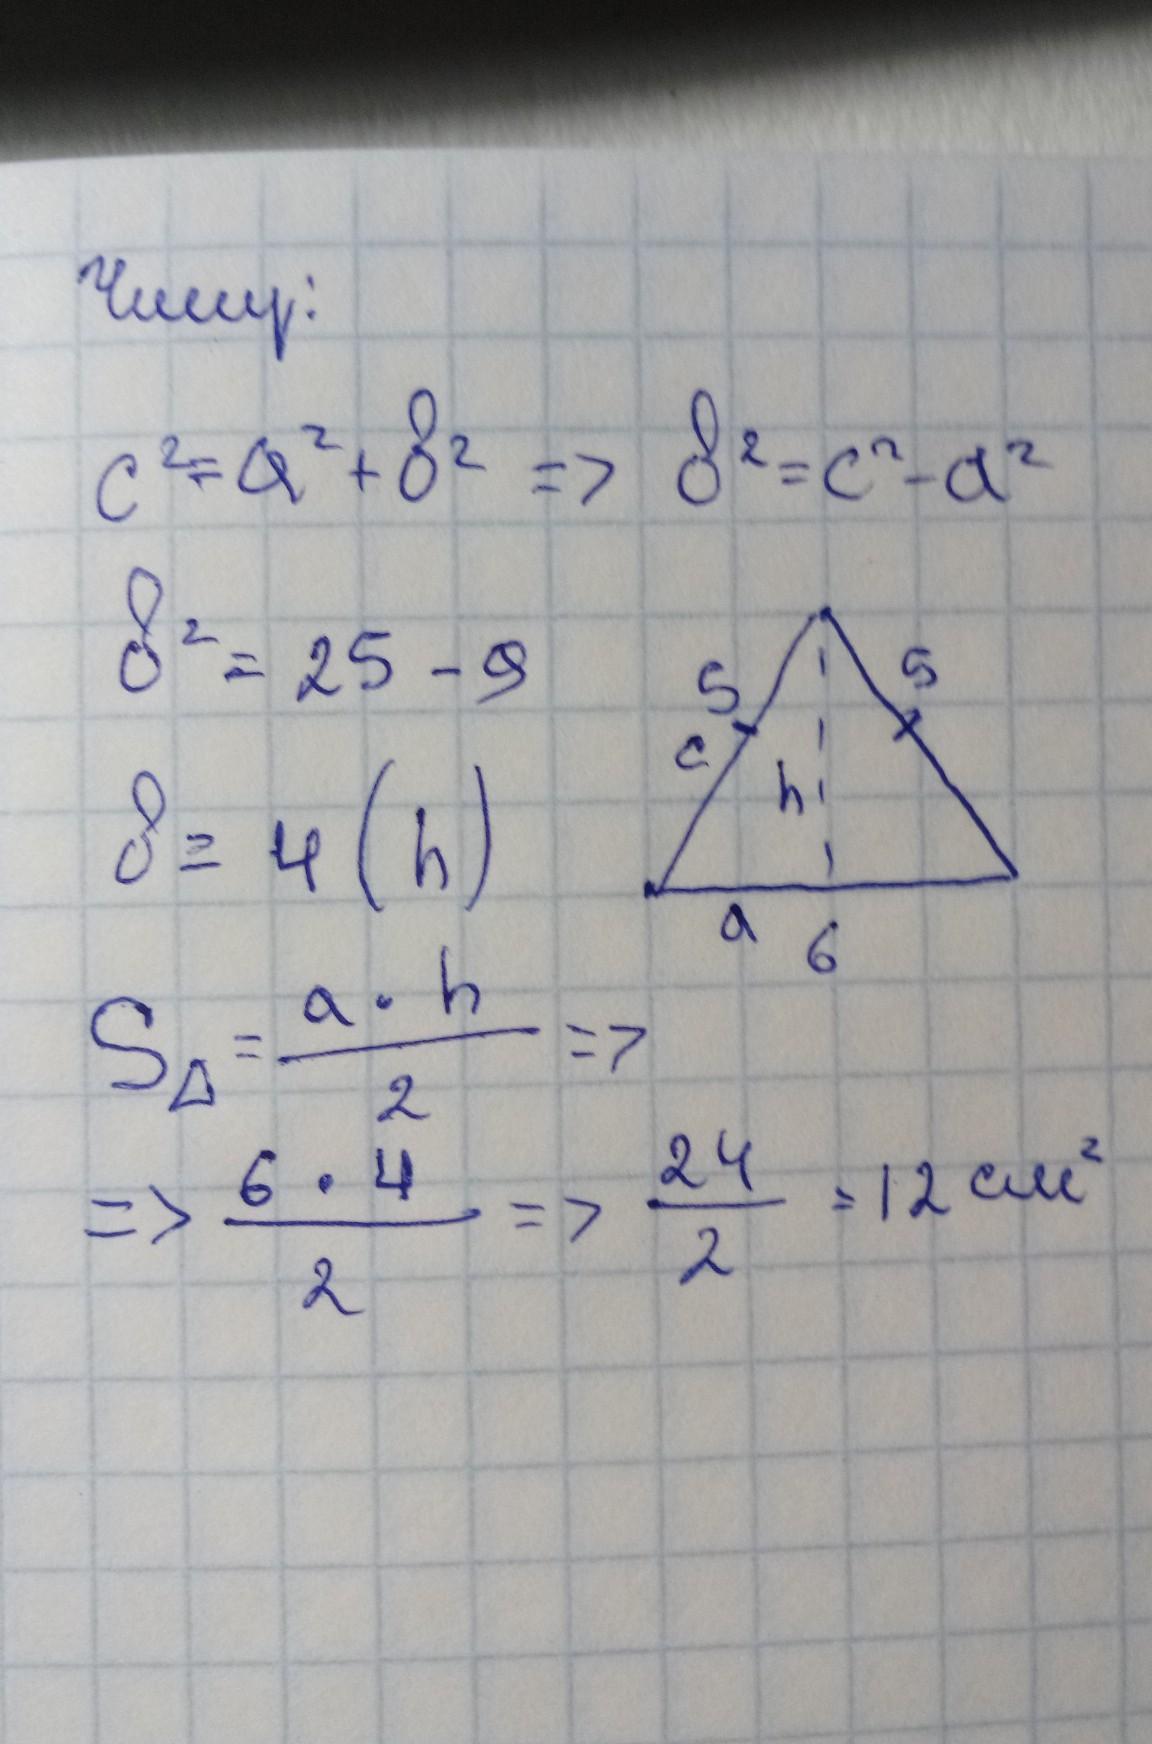 Чишу:
c² = a² + b² => b² = c² - a²
b² = 25 - 9
b = 4 (h)
5 5
c h
a 6
S△ = a · h / 2 =>
=> 6 · 4 / 2 => 24 / 2 = 12 см²